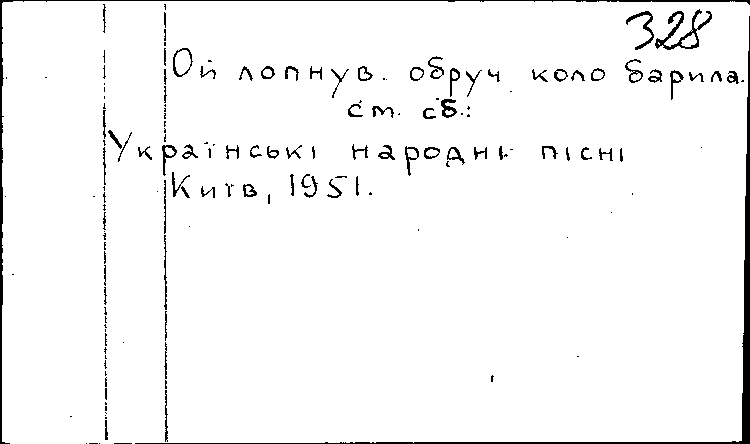 328
Ой лопнув обруч коло барила.
см. сб.:
Українські народні пісні
Київ, 1951.